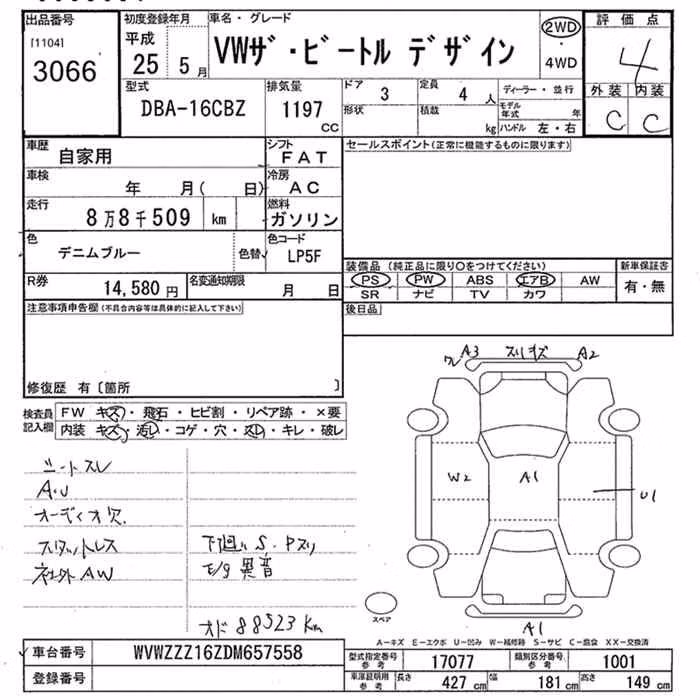 出品番号
[1104]
3066
初度登録年月
平成
25 5 月
車名・グレード
VWザ・ビートル デザイン
2WD
・
4WD
評価点
4
外装 内装
C C
型式
DBA-16CBZ
排気量
1197
cc
ドア 3
形状
定員 4 人
積載 kg
ディーラー・並行
モデル年式 年
ハンドル 左・右
車歴
自家用
シフト
FAT
車検
年 月( 日)
冷房
AC
走行
8万8千509 km
燃料
ガソリン
色
デニムブルー
色替
色コード
LP5F
R券
14,580 円
名変通知期限
月 日
セールスポイント(正常に機能するものに限ります)
装備品 (純正品に限り○をつけてください)
PS PW ABS エアB AW
SR ナビ TV カワ
新車保証書
有・無
後日品
注意事項申告欄(不具合内容等は具体的に記入して下さい)
修復歴 有〔箇所 〕
検査員
記入欄
FW キズ・飛石・ヒビ割・リペア跡・×要
内装 キズ・汚レ・コゲ・穴・スレ・キレ・破レ
シートスレ
A.U
オーディオ欠
スタットレス
社外AW
下廻りS.Pスリ
E/g異音
オド 88523Km
ワレ A3 スリキズ A2
W2 A1 U1
A1
スペア
A-キズ E-エクボ U-凹み W-補修跡 S-サビ C-腐食 XX-交換済
車台番号 WVWZZZ16ZDM657558
登録番号
型式指定番号
参考 17077
類別区分番号
参考 1001
車庫証明用
参考 長さ 427 cm 幅 181 cm 高さ 149 cm